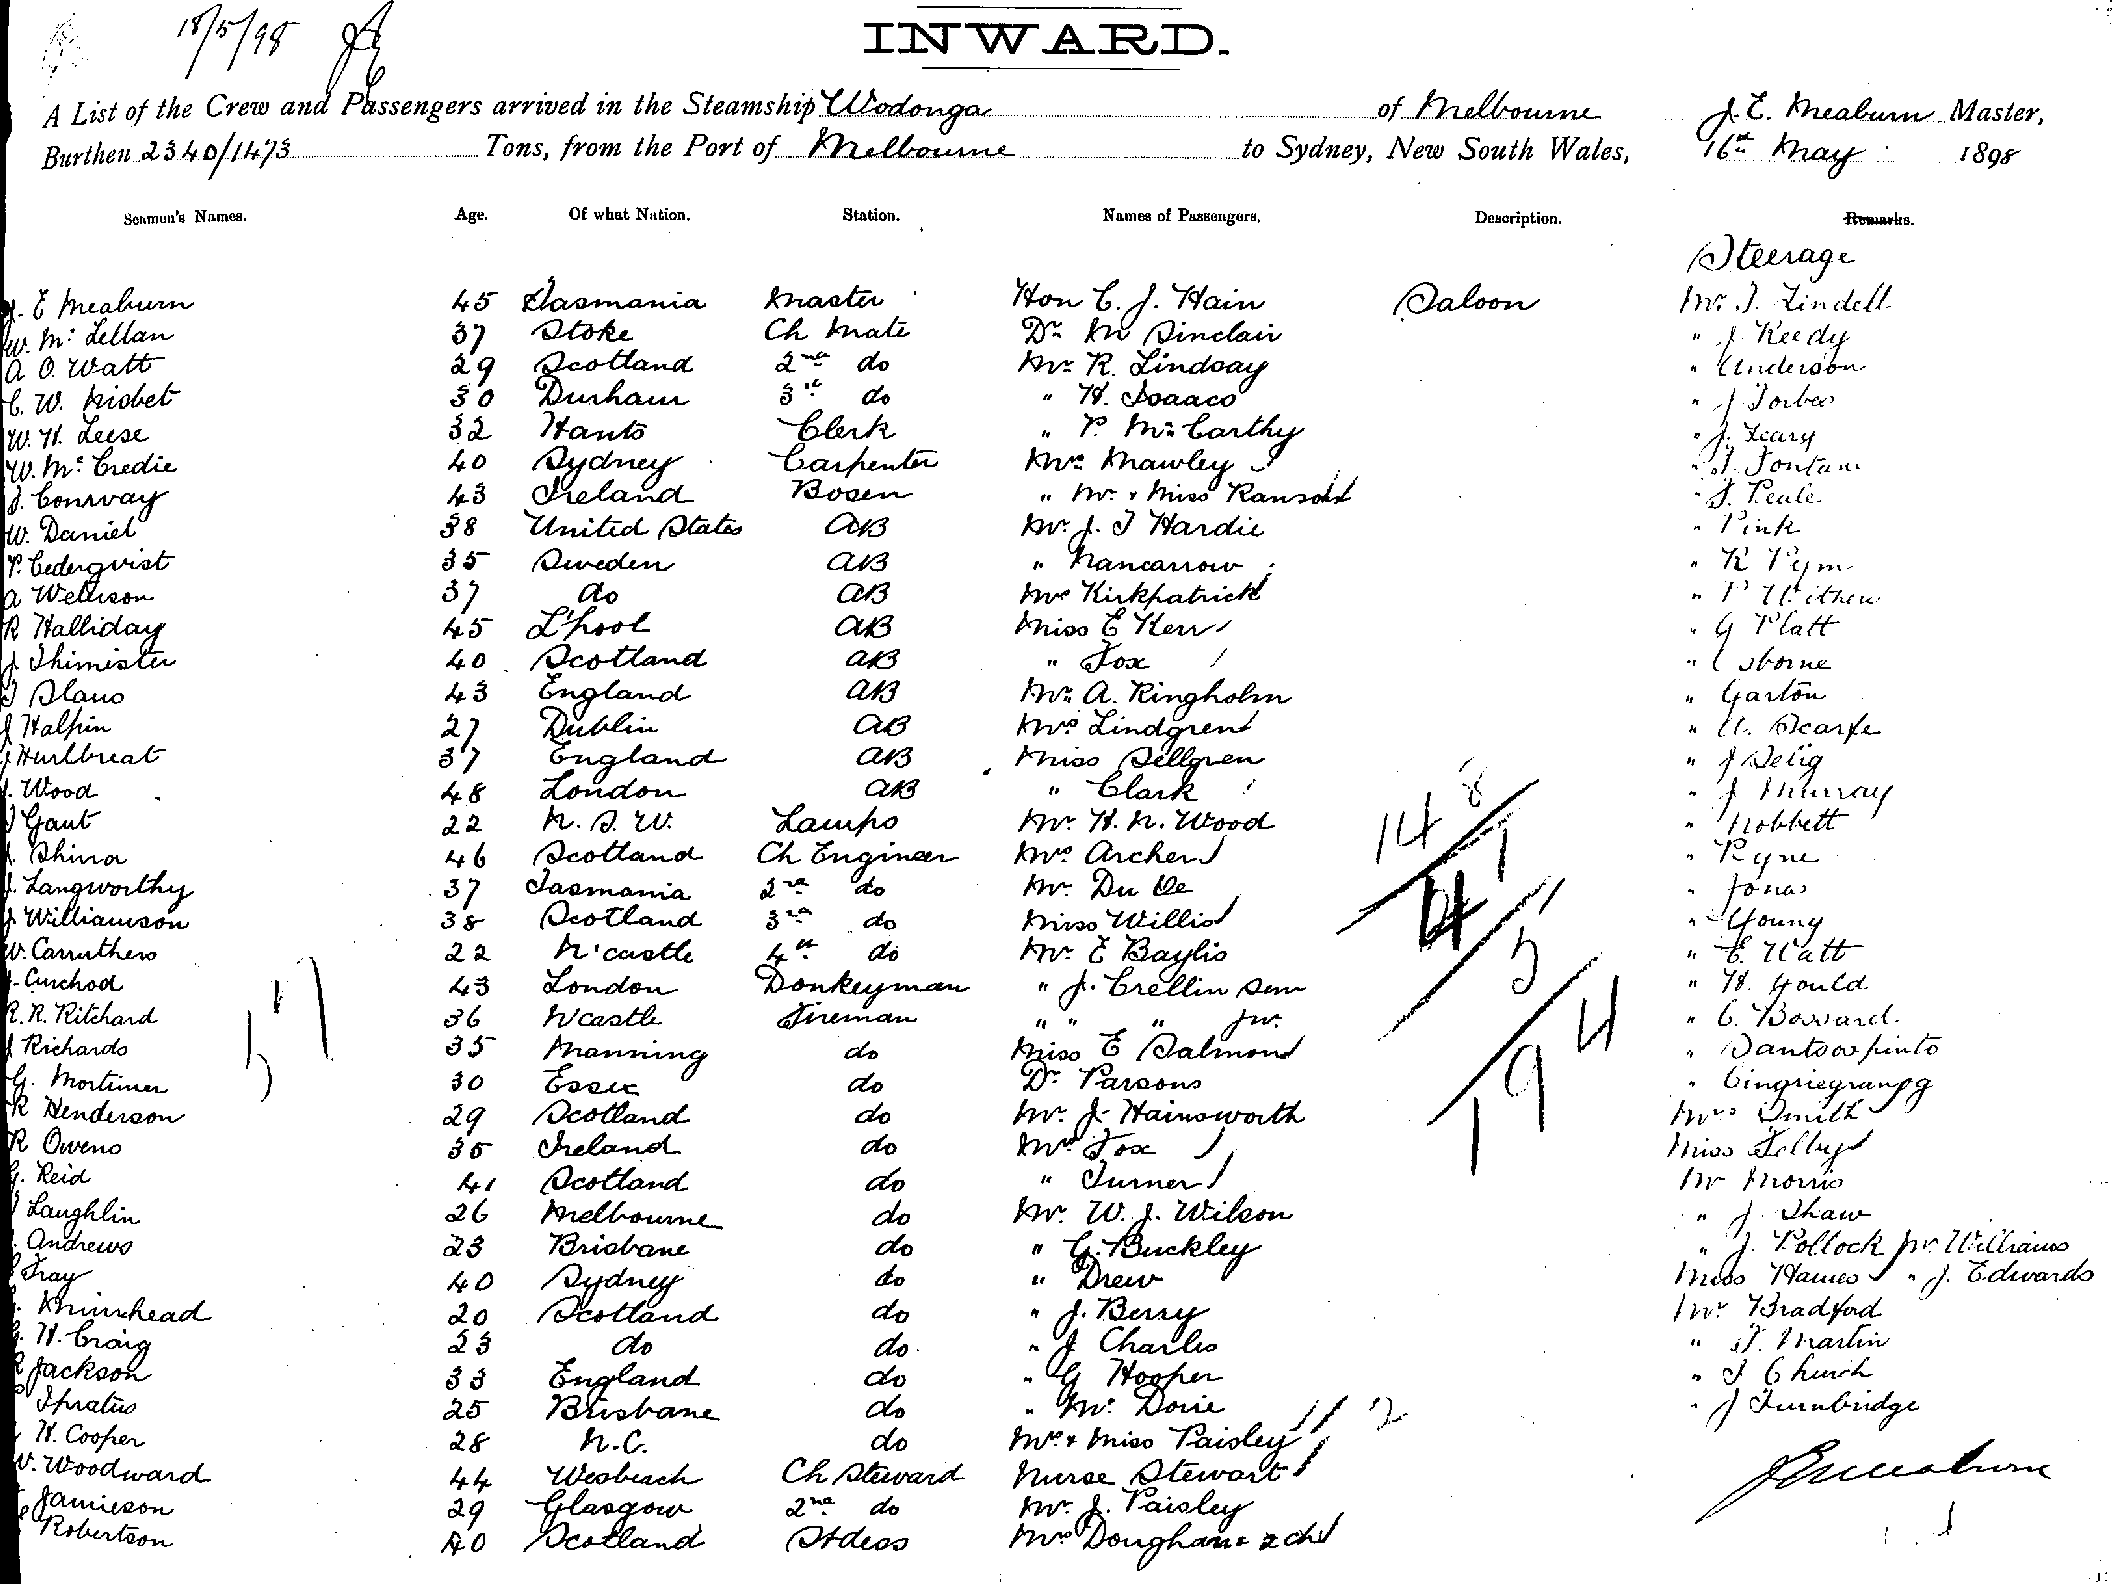 18/5/98
INWARD.
A List of the Crew and Passengers arrived in the Steamship Wodonga of Melbourne J. E. Meaburn Master,
Burthen 2340/1473 Tons, from the Port of Melbourne to Sydney, New South Wales, 16th May 1898
Seamen's Names. Age. Of what Nation. Station. Names of Passengers. Description. Remarks.
Steerage
J. E Meaburn 45 Tasmania Master Hon C. J. Hain Saloon Mr. T. Lindell
W. Mc Lellan 37 Stoke Ch Mate Dr. M Sinclair " J Reedy
A O. Watt 29 Scotland 2nd do Mr. R. Lindsay " Anderson
C. W. Nisbet 30 Durham 3rd do " H. Isaacs " J Forbes
W. H. Leese 32 Hants Clerk " P. McCarthy " J. Leary
W. Mc Credie 40 Sydney Carpenter Mrs Mawley "
J. Conway 43 Ireland Bosen " Mr. & Miss Ransom " T. Peale
W. Daniel 38 United States AB Mr. J. T Hardie " Pink
P. Cederqvist 35 Sweden AB " Nancarrow " R Pym
A Wellison 37 do AB Mrs Kirkpatrick " P Withew
R Halliday 45 L'pool AB Miss E Kerr " G Platt
J Thimister 40 Scotland AB " Fox " Osborne
Slaus 43 England AB Mr. A. Ringholm " Garton
J Halpin 27 Dublin AB Mrs Lindgren " A. Scarfe
J Hurlbreat 37 England AB Miss Sellgren " J Selig
J. Wood 48 London AB " Clark " J Murray
Gaut 22 N. S. W. Lamps Mr. H. N. Wood " Nobbett
J. Shirra 46 Scotland Ch Engineer Mrs Archer " Ryne
J. Langworthy 37 Tasmania 2nd do Mr. Du Ve " Jonas
J Williamson 38 Scotland 3rd do Miss Willis " Young
W. Carruthers 22 N'castle 4th do Mr. E Baylis " E. Watt
Curchod 43 London Donkeyman " J. Crellin Sen " H. Gould
R. R. Ritchard 36 N'castle Fireman " " " Jnr. " C. Bossard.
J Richards 35 Manning do Miss E Salmon " Santoospinto
G. Mortimer 30 Essex do Dr. Parsons "
R Henderson 29 Scotland do Mr. J. Hainsworth Mrs Smith
R Owens 35 Ireland do Mrs Fox Miss Selby
G. Reid 41 Scotland do " Turner Mr Morris
J Laughlin 26 Melbourne do Mr. W. J. Wilson " J. Shaw
Andrews 23 Brisbane do " G. Buckley " J. Pollock Mr. Williams
Fray 40 Sydney do " Drew Miss Hames " J. Edwards
Muirhead 20 Scotland do " J. Berry Mr. Bradford
H. Craig 23 do do " J Charles " T. Martin
R Jackson 33 England do " G Hooper " J Church
25 Brisbane do " Mc Dorie " J Turnbridge
H. Cooper 28 N.C. do Mrs & Miss Paisley
W. Woodward 44 Wesbeach Ch Steward Nurse Stewart JE Meaburn
Jamieson 29 Glasgow 2nd do Mr. J. Paisley
Robertson 40 Scotland Stdess Mrs Doughan & 2 ch
57
14 8
4 1
5 1
9 4
1
2